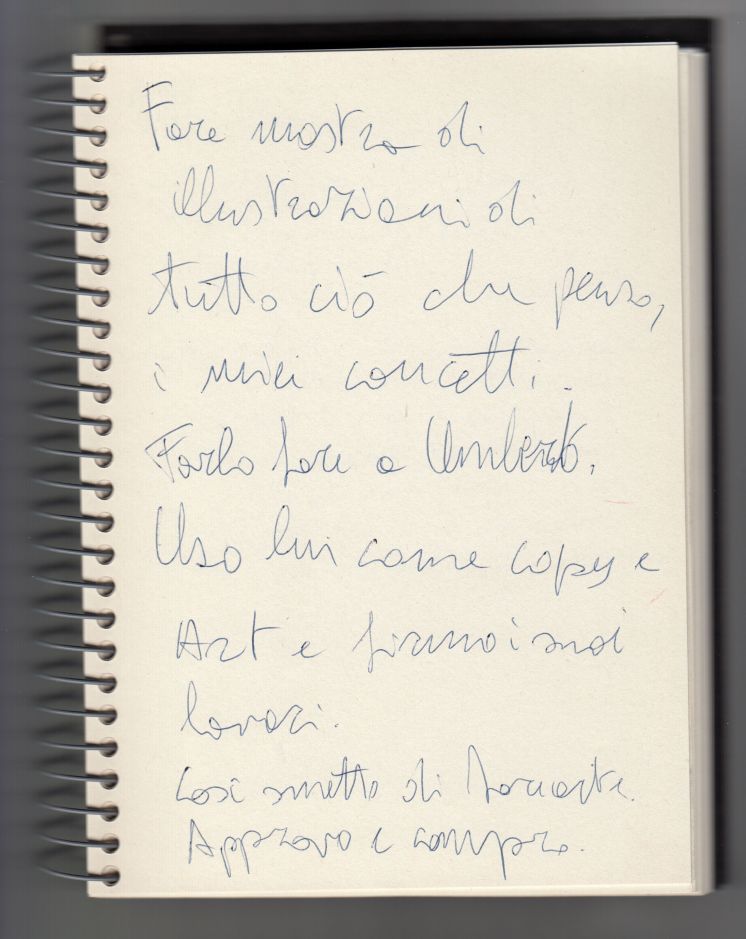 Fare mostra di
illustrazioni di
tutto ciò che penso,
i miei concetti.
Farlo fare a Umberto.
Uso lui come copy e
Art e firmo i suoi
lavori.
Così smetto di fare arte.
Approvo e compro.